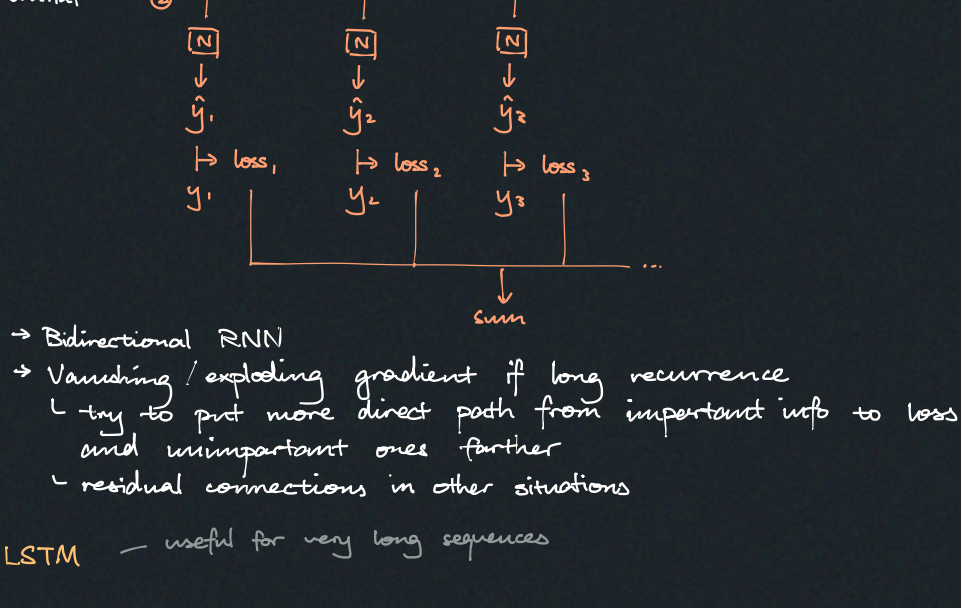 ②
N N N
ŷ₁ ŷ₂ ŷ₃
↦ loss₁ ↦ loss₂ ↦ loss₃
y₁ y₂ y₃
...
sum
→ Bidirectional RNN
→ Vanishing / exploding gradient if long recurrence
└ try to put more direct path from important info to loss
and unimportant ones farther
└ residual connections in other situations
LSTM — useful for very long sequences